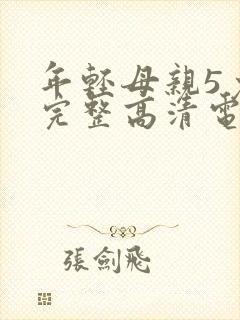 年輕母親5
完整高清電
張劍飛